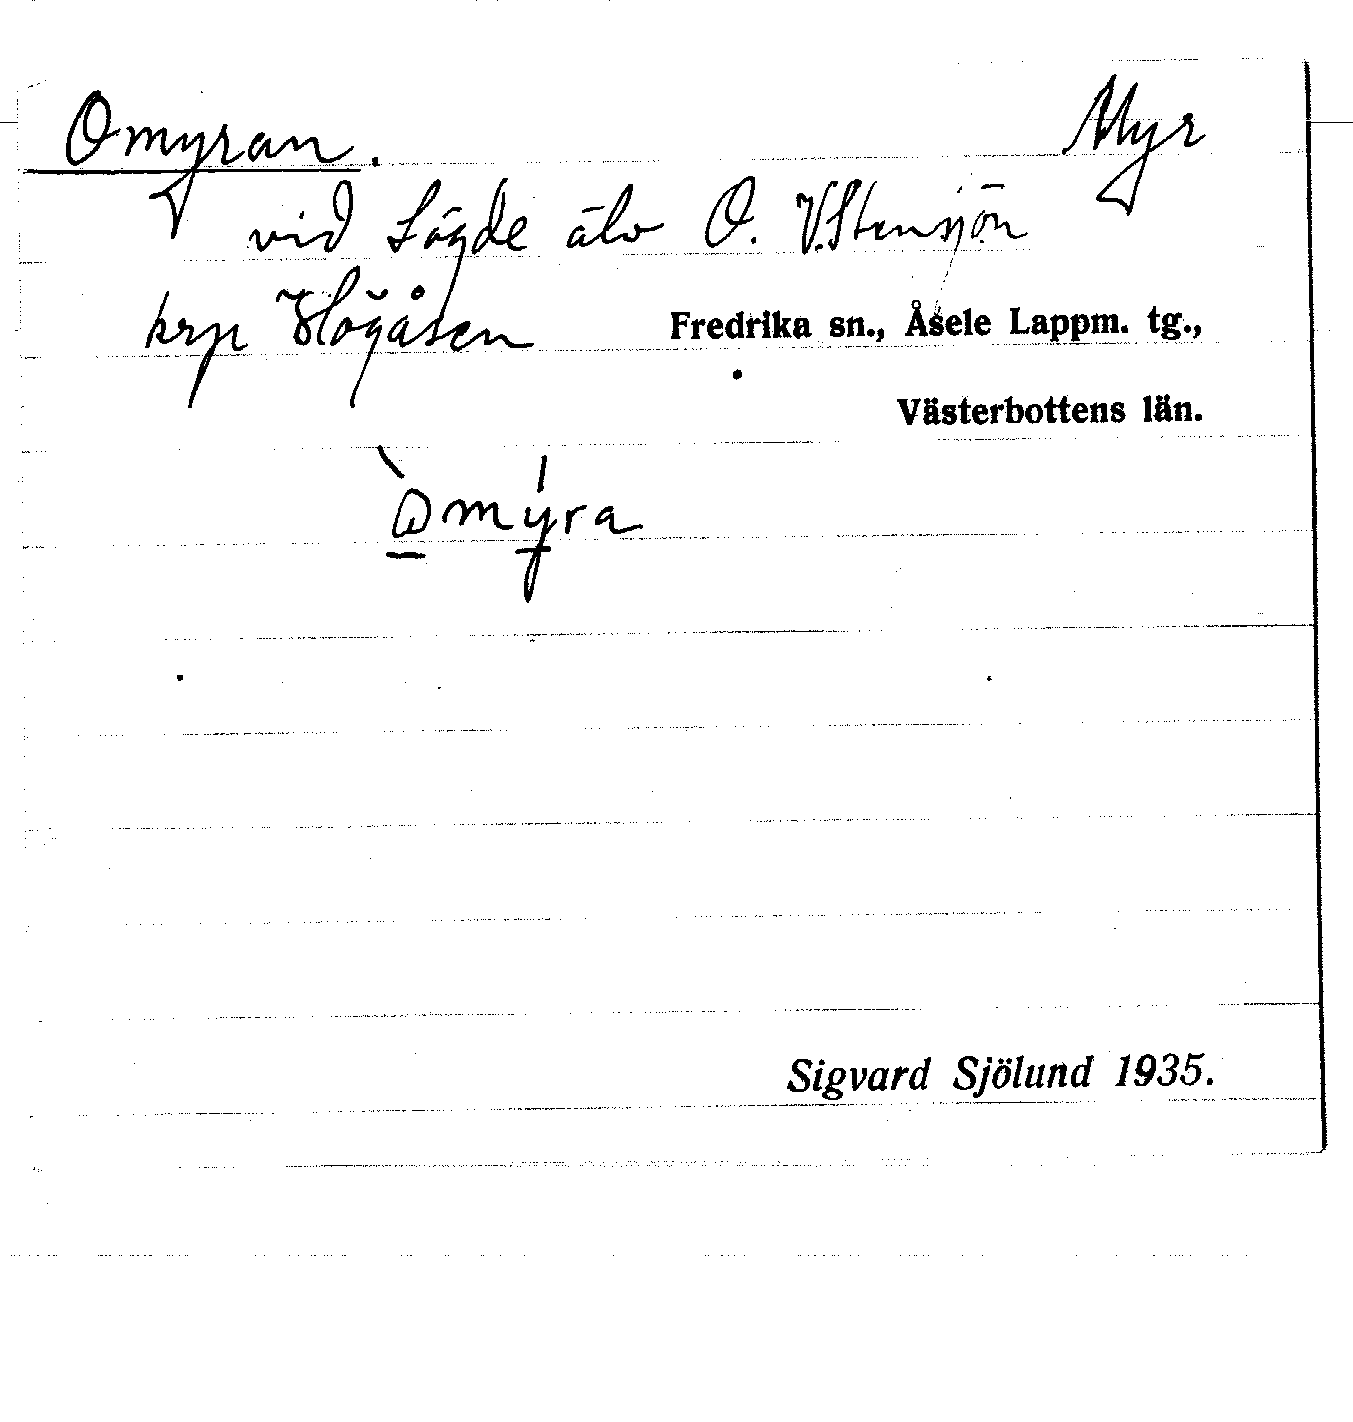 Omyran. Myr
vid Lögde älv O. V. Stensjön
krp Högåsen Fredrika sn., Åsele Lappm. tg.,
Västerbottens län.
òmýra
Sigvard Sjölund 1935.